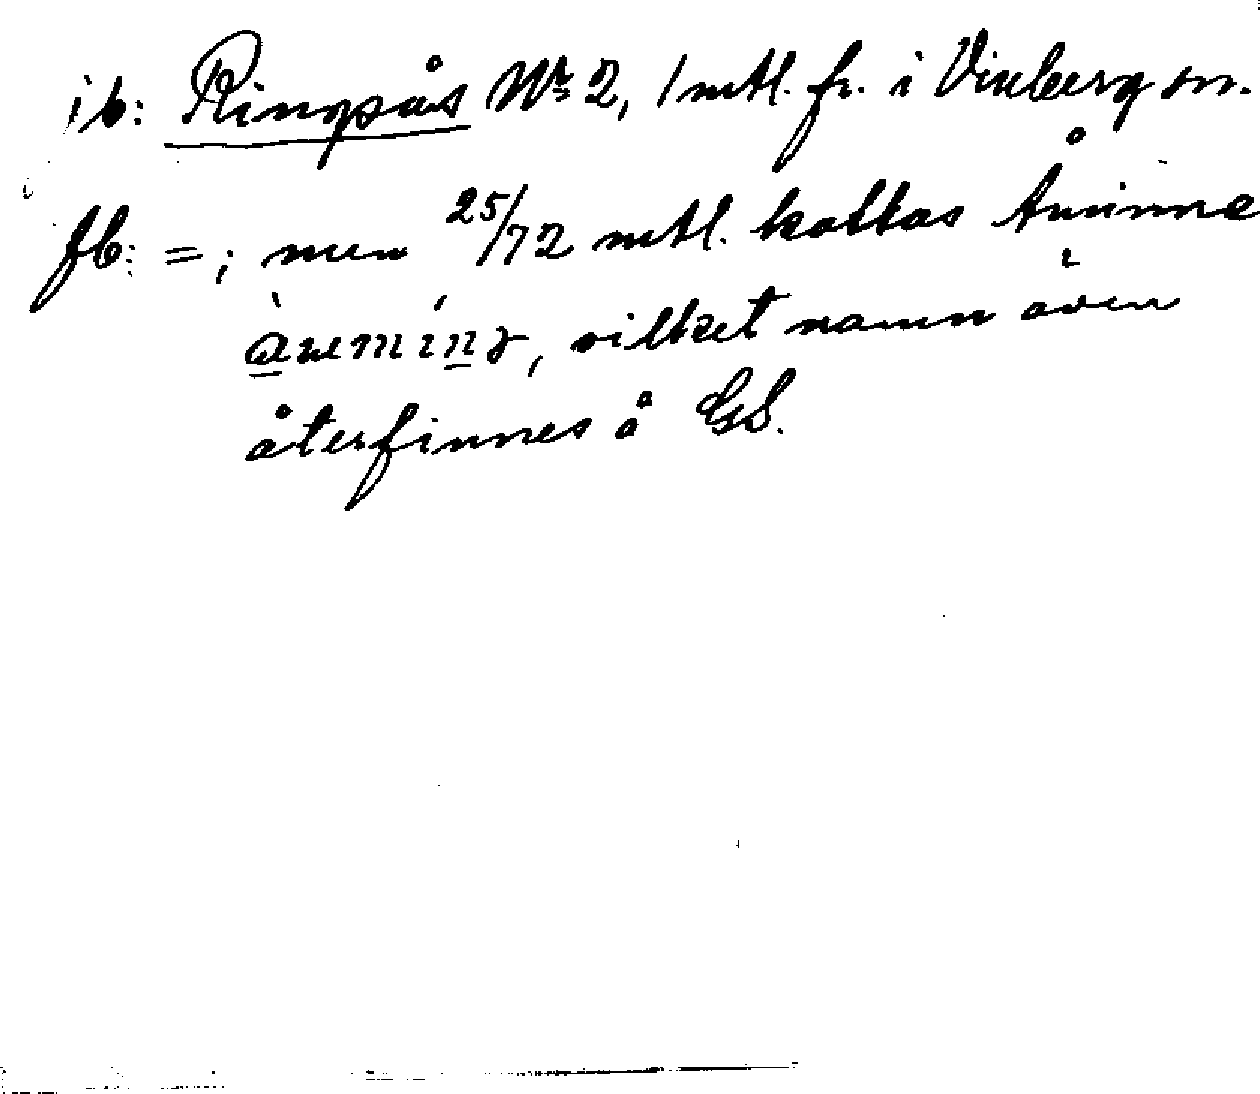 jb: Ringsås Nr 2, 1 mtl. fr. i Vinberg sn.
fb: =; men 25/72 mtl. kallas Åminne
vilket namn även
återfinnes å GS.